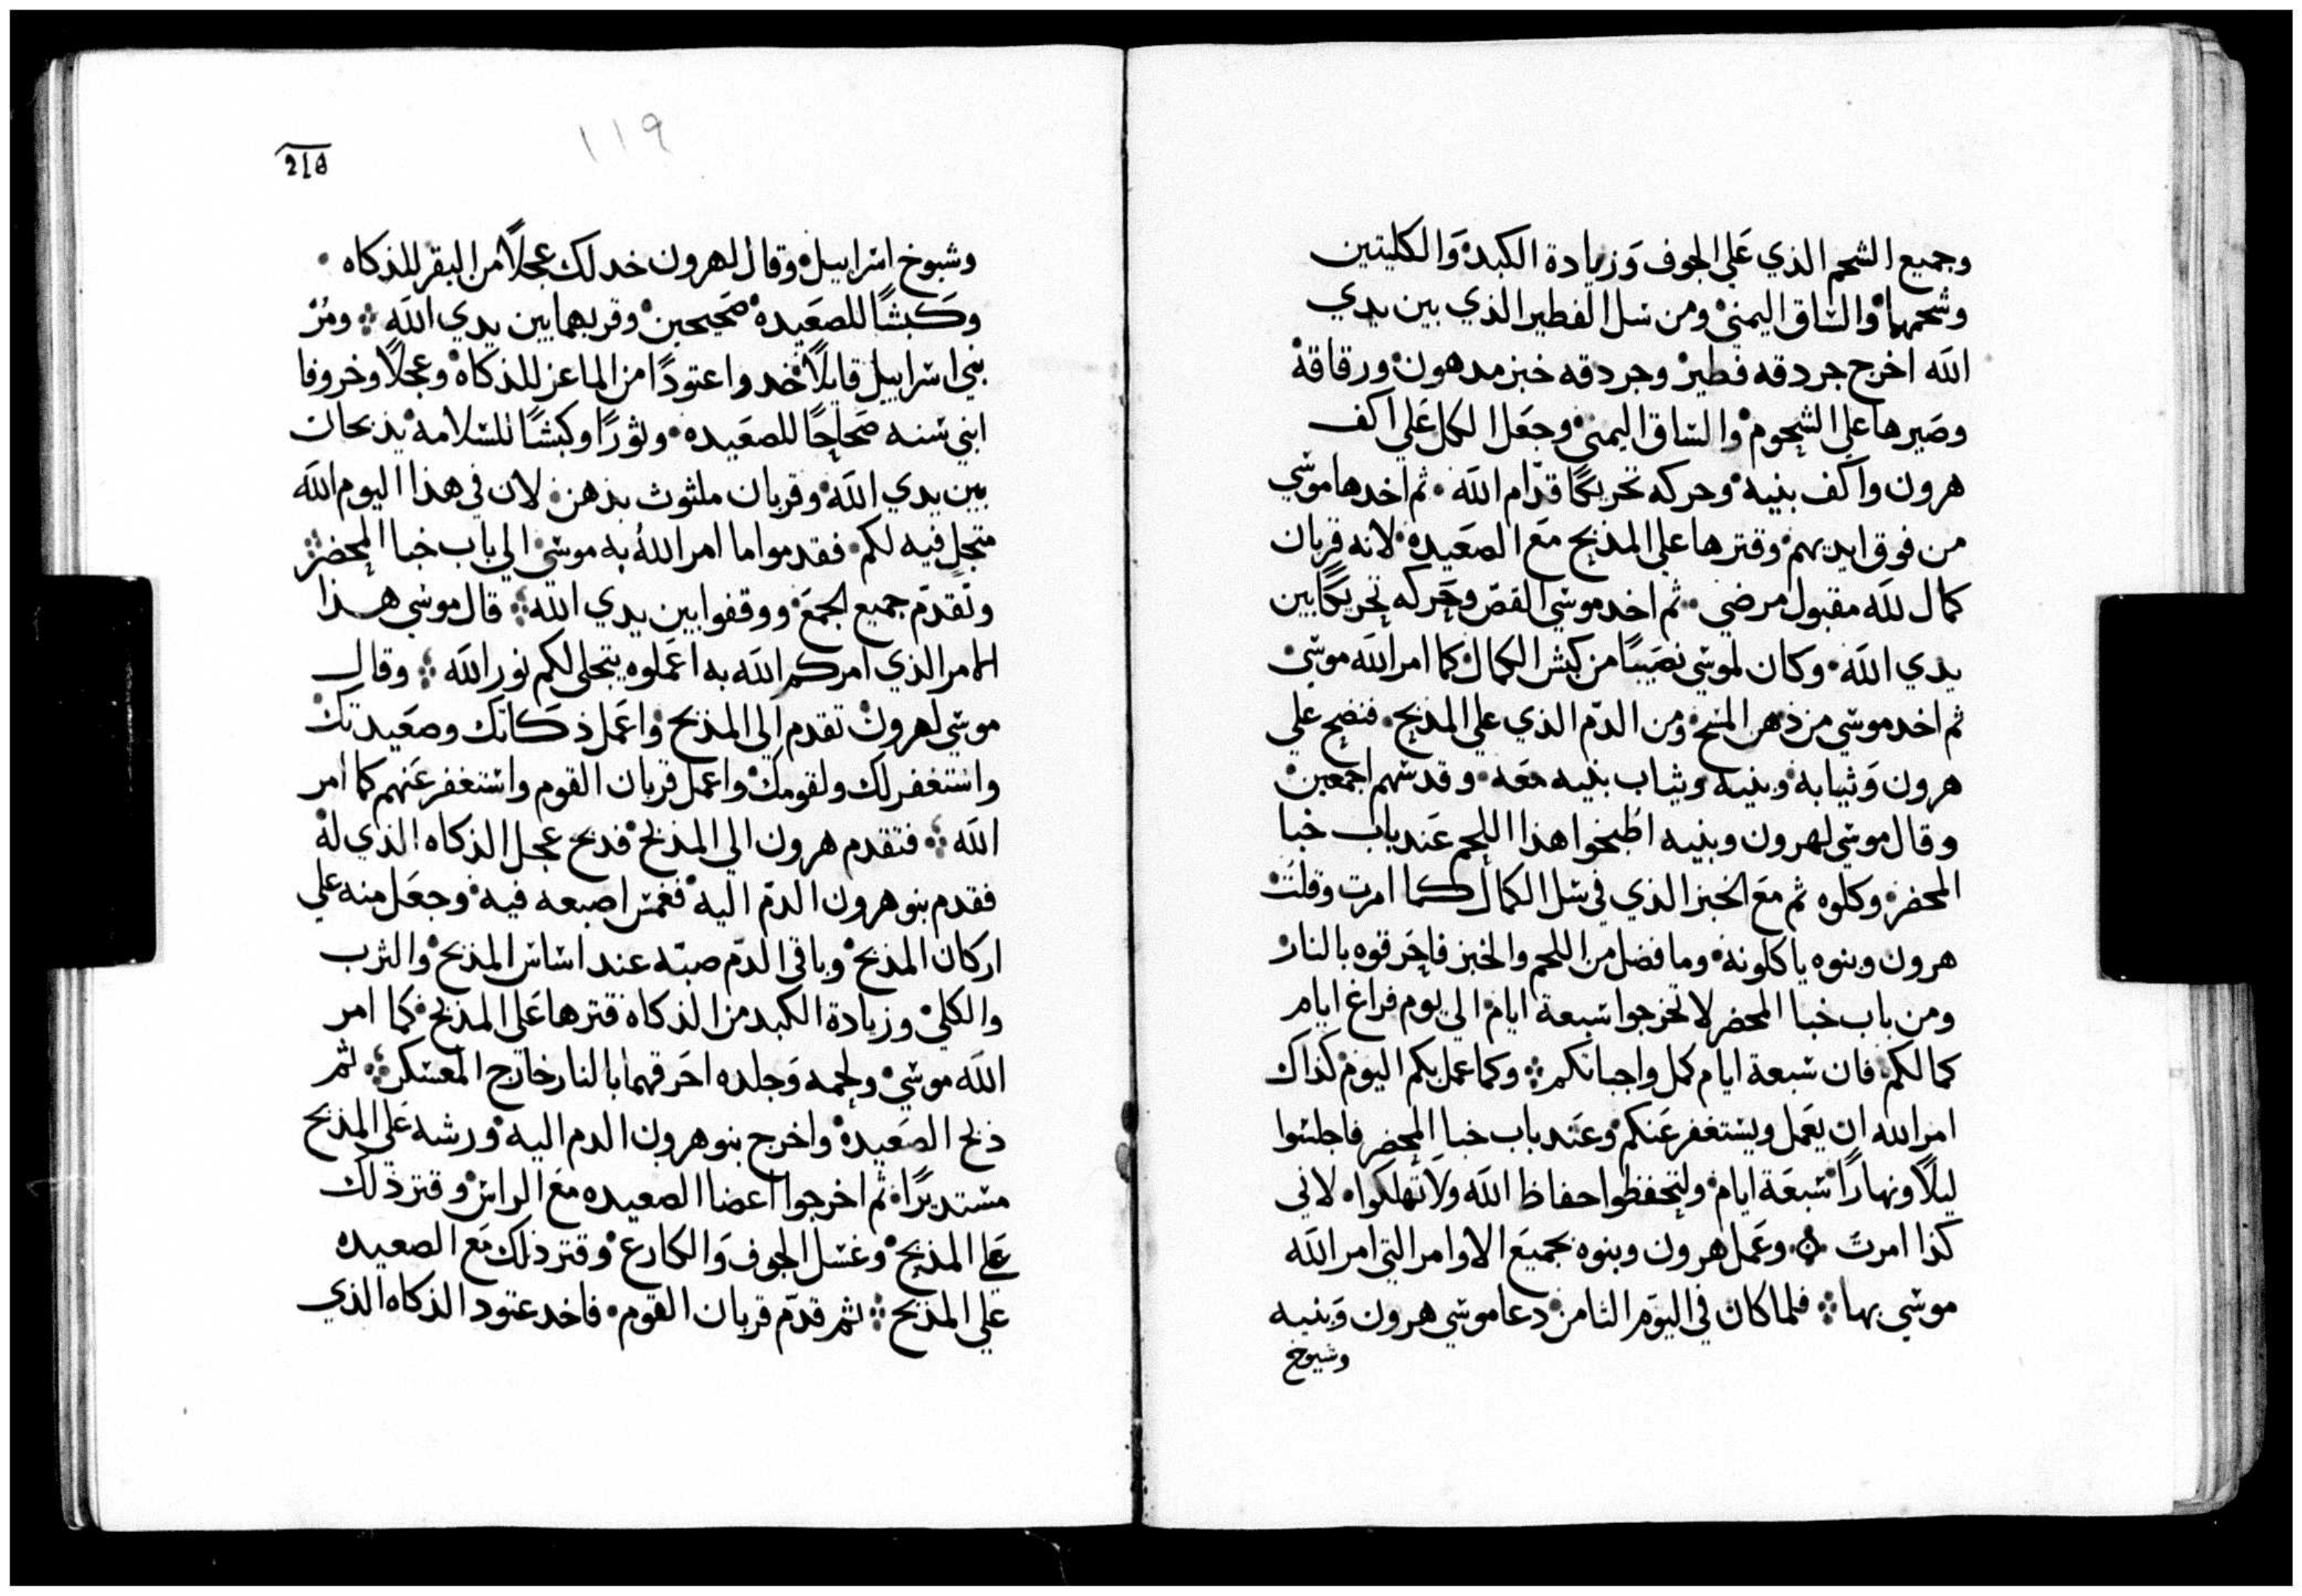 وجميع الشحم الذي علي الجوف وزيادة الكبد والكليتين
وشحمهما والساق اليمني ومن سل الفطير الذي بين يدي
الله اخرج جردقه فطير وجردقه خبز مدهون ورقاقة
وصيرها علي الشحوم والساق اليمني وجعل الكل علي اكف
هرون واكف بنيه وحركه تحريكًا قدّام الله ثم اخدها موسي
من فوق ايديهم وقترها علي المذبح مع الصعيدة لانه قربان
كمال لله مقبول مرضي ثم اخد موسي القصّ وحركه تحريكًا بين
يدي الله وكان لموسي نصيبًا من كبش الكمال كما امر الله موسي
ثم اخد موسي من دهن المسح ومن الدّم الذي علي المذبح فنضح علي
هرون وثيابه وبنيه وثياب بنيه معه وقدسهم اجمعين
وقال موسي لهرون وبنيه اطبخوا هذا اللحم عند باب خبا
المحضر وكلوه ثم مع الخبز الذي في سل الكمال كما امرت وقلت
هرون وبنوه ياكلونه وما فضل من اللحم والخبز فاحرقوه بالنار
ومن باب خبا المحضر لا تخرجوا سبعة ايام الي يوم فراغ ايام
كمالكم فان سبعة ايام كمل واجباتكم وكما عمل بكم اليوم كذاك
امر الله ان يعمل ويستغفر عنكم وعند باب خبا المحضر فاجلسوا
ليلًا ونهارًا سبعة ايام ولتحفظوا حفاظ الله ولا تهلكوا لاني
كذا امرت وعمل هرون وبنوه بجميع الاوامر التي امر الله
موسي بها فلما كان في اليوم الثامن دعا موسي هرون وبنيه
وشيوخ
١١٩
219
وشيوخ اسراييل وقال لهرون خد لك عجلًا من البقر للذكاه
وكبشًا للصعيده صحيحين وقربهما بين يدي الله ومُرْ
بني اسراييل قايلًا خدوا عتودًا من الماعز للذكاة وعجلًا وخروفا
ابني سنه صحاحًا للصعيده وثورًا وكبشًا للسلامة يذبحان
بين يدي الله وقربان ملثوث بدهن لان في هذا اليوم الله
متجلٍ فيه لكم فقدموا ما امر اللهُ به موسي الي باب خبا المحضر
وتقدّم جميع الجمع ووقفوا بين يدي الله قال موسي هذا
الامر الذي امركم الله به اعملوه يتجلي لكم نور الله وقال
موسي لهرون تقدم الي المذبح واعمل ذكاتك وصعيدتك
واستغفر لك ولقومك واعمل قربان القوم واستغفر عنهم كما امر
الله فتقدم هرون الي المذبح فدبح عجل الذكاه الذي له
فقدم بنو هرون الدمّ اليه فغمس اصبعه فيه وجعل منه علي
اركان المذبح وباقي الدّم صبّه عند اساس المذبح والثرب
والكلي وزيادة الكبد من الذكاه قترها علي المذبح كما امر
الله موسي ولحمه وجلده احرقهما بالنار خارج المعسكر ثم
ذبح الصعيدة واخرج بنو هرون الدم اليه ورشه علي المذبح
مستديرًا ثم اخرجوا اعضا الصعيده مع الراس وقتر ذلك
علي المذبح وغسل الجوف والكارع وقتر ذلك مع الصعيده
علي المذبح ثم قدّم قربان القوم فاخد عتود الذكاه الذي